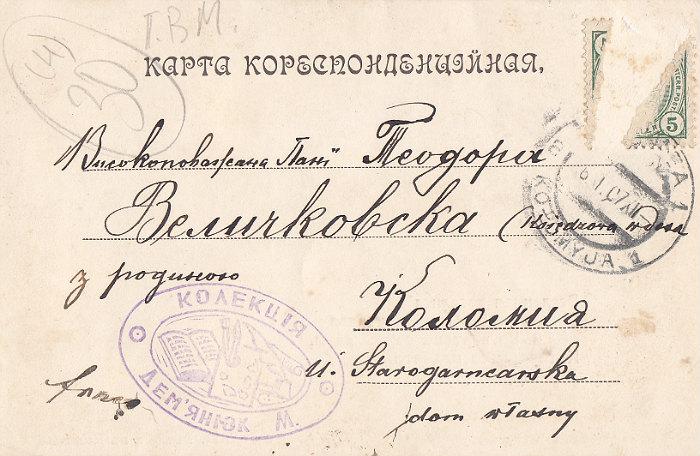 Г.В.М.
(4)
30
КАРТА КОРЕСПОНДЕНЦІЙНАЯ.
5
Високоповажана Пані Теодора
Величковска
KOŁOMYJA 1
6 1 07
з родиною
Коломия
КОЛЕКЦІЯ
ДЕМ'ЯНЮК М.
ul. Starogarncarska
dom własny